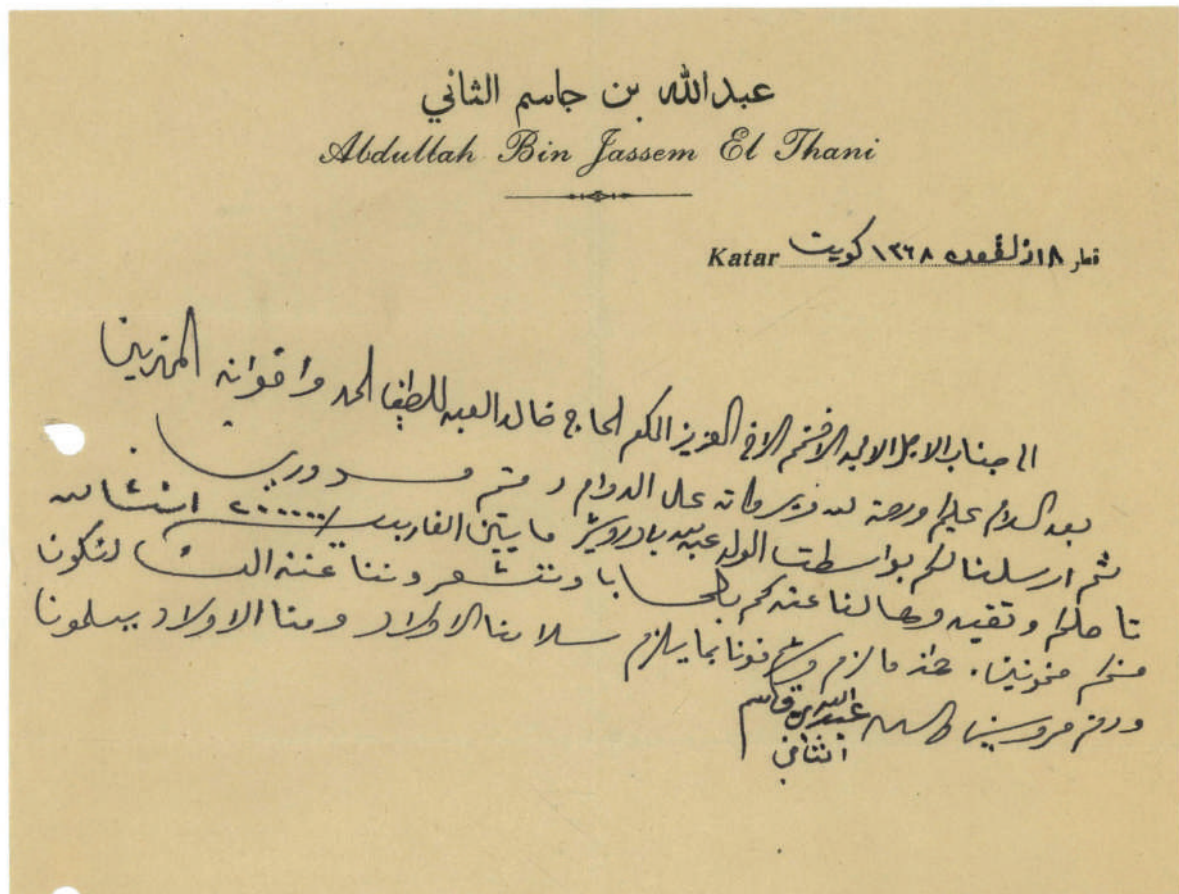 عبدالله بن جاسم الثاني
Abdullah Bin Jassem El Thani
قطر ١٨ ذلقعده ١٣٦٨ كويت Katar
الى جناب الاجل الامجد الافخم الاخ العزيز المكرم الحاج خالد العبد للطيف الحمد واخوانه المحترمين
بعد السلام عليكم ورحمة الله وبركاته على الدوام دمتم مسرورين
ثم ارسلنا لكم بواسطت الولد عبدالله بادرويش مايتين الف ربيه /٢٠٠٠٠٠ انشالله
تاصلكم وتقيدوها لنا عندكم بالحسابا وتشعروننا عنه لنكون
منكم ممنونين. هذا مالزم وشرفونا بما يلزم سلامنا الاولاد ومنا الاولاد يسلمون
ودمتم محروسين والسلام عبدالله بن قاسم
الثاني